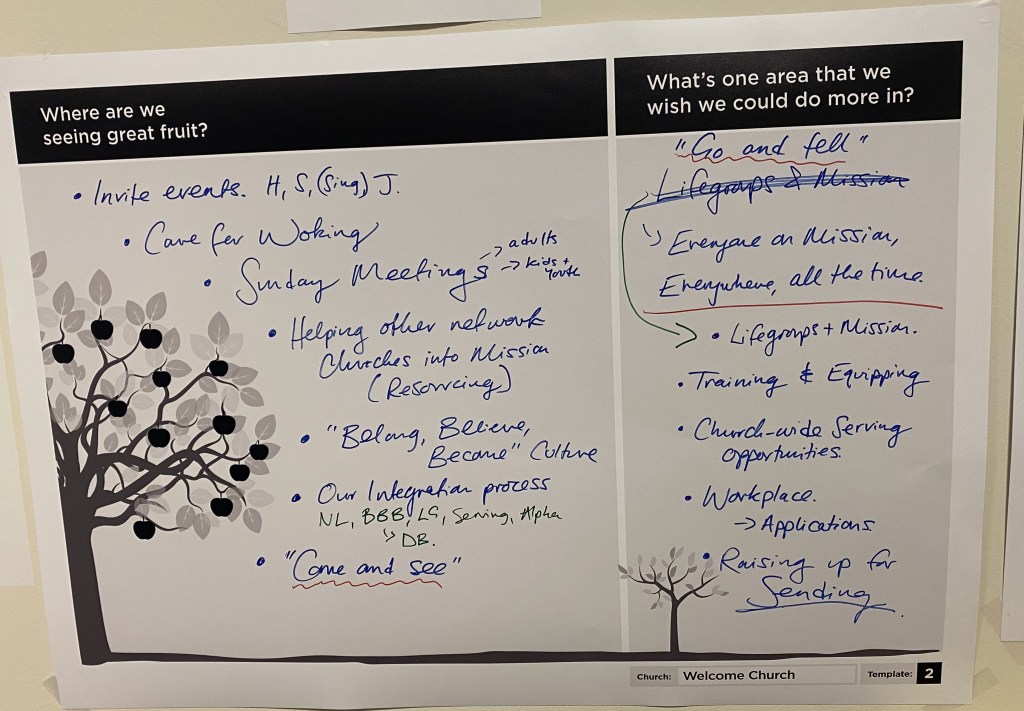 Where are we
seeing great fruit?
• Invite events. H, S, (Sing) J.
• Care for Woking
• Sunday Meetings → adults
→ kids + Youth
• Helping other network
Churches into Mission
(Resourcing)
• "Belong, Believe,
Become" Culture
• Our Integration process
NL, BBB, LG, Serving, Alpha
↳ DB.
• "Come and see"
What's one area that we
wish we could do more in?
"Go and tell"
Lifegroups & Mission
↳ Everyone on Mission,
Everywhere, all the time.
• Lifegroups + Mission.
• Training & Equipping
• Church-wide Serving
opportunities.
• Workplace.
→ Applications
• Raising up for
Sending.
Church: Welcome Church Template: 2